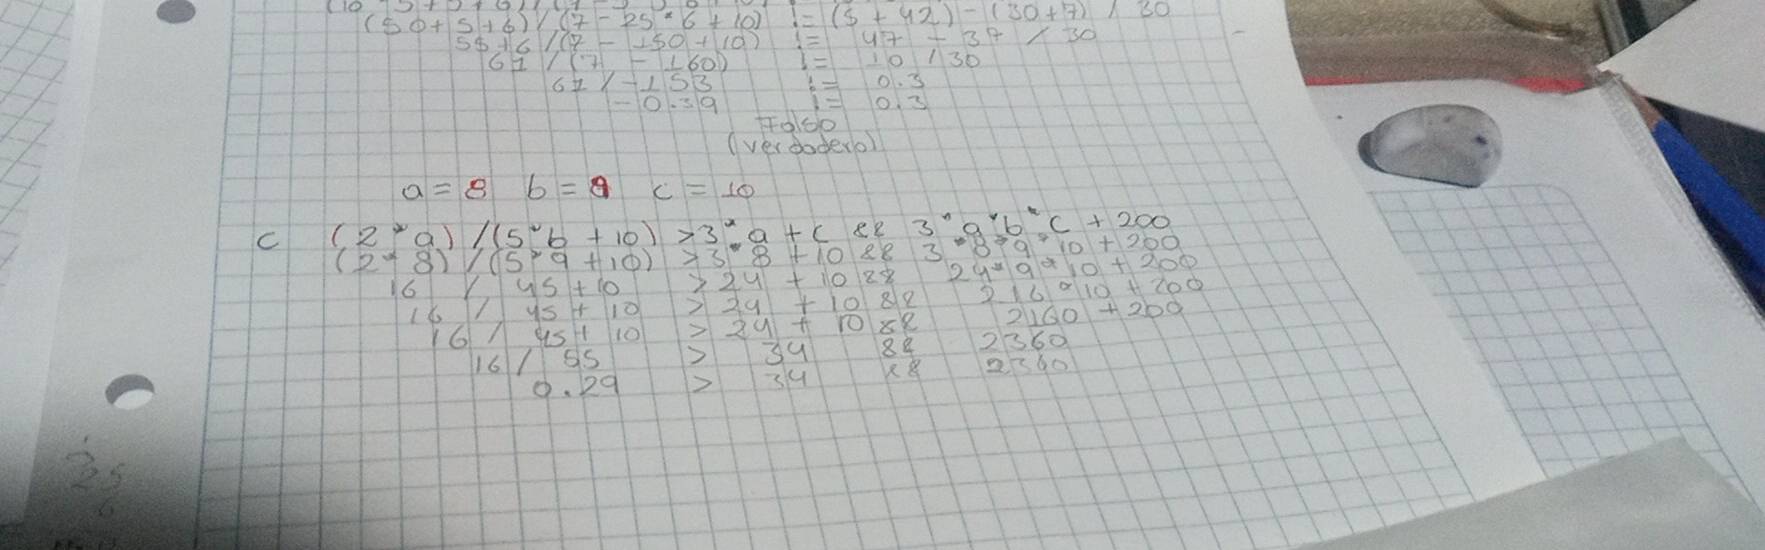 (50+5+6)/(7-25*6+10) != (5+42)-(30+7)/30
55+6/(7-150+10) != 47-37/30
61/(7-160) != 10/30
61/-153 != 0.3
-0.39 != 0.3
Falso
(verdadero)
a=8 b=9 c=10
c (2*a)/(5*b+10)>3*a+c && 3*a*b*c+200
(2*8)/(5*9+10)>3*8+10 && 3*8*9*10+200
16/45+10>24+10 && 24*9*10+200
16/45+10>24+10 && 216*10+200
16/45+10>24+10 && 2160+200
16/55>34 && 2360
0.29>34 && 2360
25
6